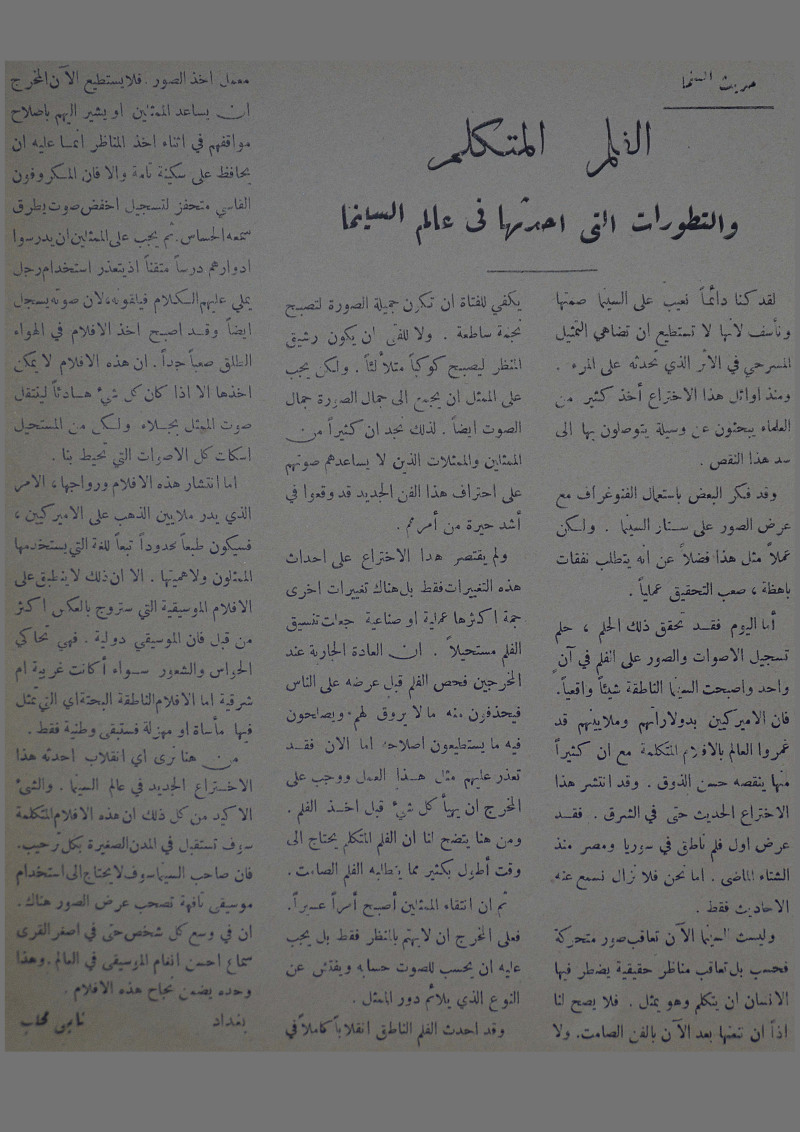 حديث السينما
الفلم المتكلم
والتطورات التى احدثها فى عالم السينما
لقد كنا دائماً نعيب على السينما صمتها
ونأسف لانها لا تستطيع ان تضاهي التمثيل
المسرحي في الاثر الذي تحدثه على المرء .
ومنذ اوائل هذا الاختراع أخذ كثير من
العلماء يبحثون عن وسيلة يتوصلون بها الى
سد هذا النقص .
وقد فكر البعض باستعمال الفنوغراف مع
عرض الصور على ستار السينما . ولكن
عملاً مثل هذا فضلاً عن انه يتطلب نفقات
باهظة ، صعب التحقيق عملياً .
أما اليوم فقد تحقق ذلك الحلم ، حلم
تسجيل الاصوات والصور على الفلم في آن
واحد واصبحت السينما الناطقة شيئاً واقعياً.
فان الاميركيين بدولاراتهم وملايينهم قد
غمروا العالم بالافلام المتكلمة مع ان كثيراً
منها ينقصه حسن الذوق . وقد انتشر هذا
الاختراع الحديث حتى في الشرق . فقد
عرض اول فلم ناطق في سوريا ومصر منذ
الشتاء الماضى . اما نحن فلا نزال نسمع عنه
الاحاديث فقط .
وليست السينما الآن تعاقب صور متحركة
فحسب بل تعاقب مناظر حقيقية يضطر فيها
الانسان ان يتكلم وهو يمثل . فلا يصح لنا
اذاً ان ننعتها بعد الآن بالفن الصامت. ولا
يكفي للفتاة ان تكون جميلة الصورة لتصبح
نجمة ساطعة . ولا للفتى ان يكون رشيق
المنظر ليصبح كوكباً متلألئاً . ولكن يجب
على الممثل ان يجمع الى جمال الصورة جمال
الصوت ايضاً . لذلك نجد ان كثيراً من
الممثلين والممثلات الذين لا يساعدهم صوتهم
على احتراف هذا الفن الجديد قد وقعوا في
أشد حيرة من أمرهم .
ولم يقتصر هذا الاختراع على احداث
هذه التغييرات فقط بل هناك تغييرات اخرى
جمة اكثرها عملية او صناعية جعلت تنسيق
الفلم مستحيلاً . ان العادة الجارية عند
المخرجين فحص الفلم قبل عرضه على الناس
فيحذفون منه ما لا يروق لهم ويصلحون
فيه ما يستطيعون اصلاحه اما الان فقد
تعذر عليهم مثل هذا العمل ووجب على
المخرج ان يهيأ كل شيء قبل اخذ الفلم .
ومن هنا يتضح لنا ان الفلم المتكلم يحتاج الى
وقت أطول بكثير مما يتطلبه الفلم الصامت .
ثم ان انتقاء الممثلين أصبح أمراً عسيراً.
فعلى المخرج ان لا يهتم بالمنظر فقط بل يجب
عليه ان يحسب للصوت حسابه ويفتش عن
النوع الذي يلائم دور الممثل .
وقد احدث الفلم الناطق انقلاباً كاملاً في
معمل اخذ الصور . فلا يستطيع الآن المخرج
ان يساعد الممثلين او يشير اليهم باصلاح
مواقفهم في اثناء اخذ المناظر انما عليه ان
يحافظ على سكينة تامة والا فان المكروفون
القاسي متحفز لتسجيل اخفض صوت يطرق
سمعه الحساس. ثم يجب على الممثلين ان يدرسوا
ادوارهم درساً متقناً اذ يتعذر استخدام رجل
يملي عليهم الكلام فيلفونه، لان صوته يسجل
ايضاً وقد اصبح اخذ الافلام في الهواء
الطلق صعباً جداً . ان هذه الافلام لا يمكن
اخذها الا اذا كان كل شيء هادئاً لينتقل
صوت الممثل بجلاء ولكن من المستحيل
اسكات كل الاصوات التي تحيط بنا .
اما انتشار هذه الافلام ورواجها، الامر
الذي يدر ملايين الذهب على الاميركيين ،
فسيكون طبعاً محدوداً تبعاً للغة التي يستخدمها
الممثلون ولاهميتها . الا ان ذلك لا ينطبق على
الافلام الموسيقية التي ستروج بالعكس اكثر
من قبل فان الموسيقي دولية . فهي تحاكي
الحواس والشعور سواء أكانت غربية ام
شرقية اما الافلام الناطقة البحتة اي التي تمثل
فيها مأساة او مهزلة فستبقى وطنية فقط .
من هنا نرى اي انقلاب احدثه هذا
الاختراع الجديد في عالم السينما . والشئ
الاكيد من كل ذلك ان هذه الافلام المتكلمة
سوف تستقبل في المدن الصغيرة بكل ترحيب.
فان صاحب السينما سوف لا يحتاج الى استخدام
موسيقى تافهة تصحب عرض الصور هناك.
ان في وسع كل شخص حتى في اصغر القرى
سماع احسن انغام الموسيقى في العالم . وهذا
وحده يضمن نجاح هذه الافلام .
بغداد